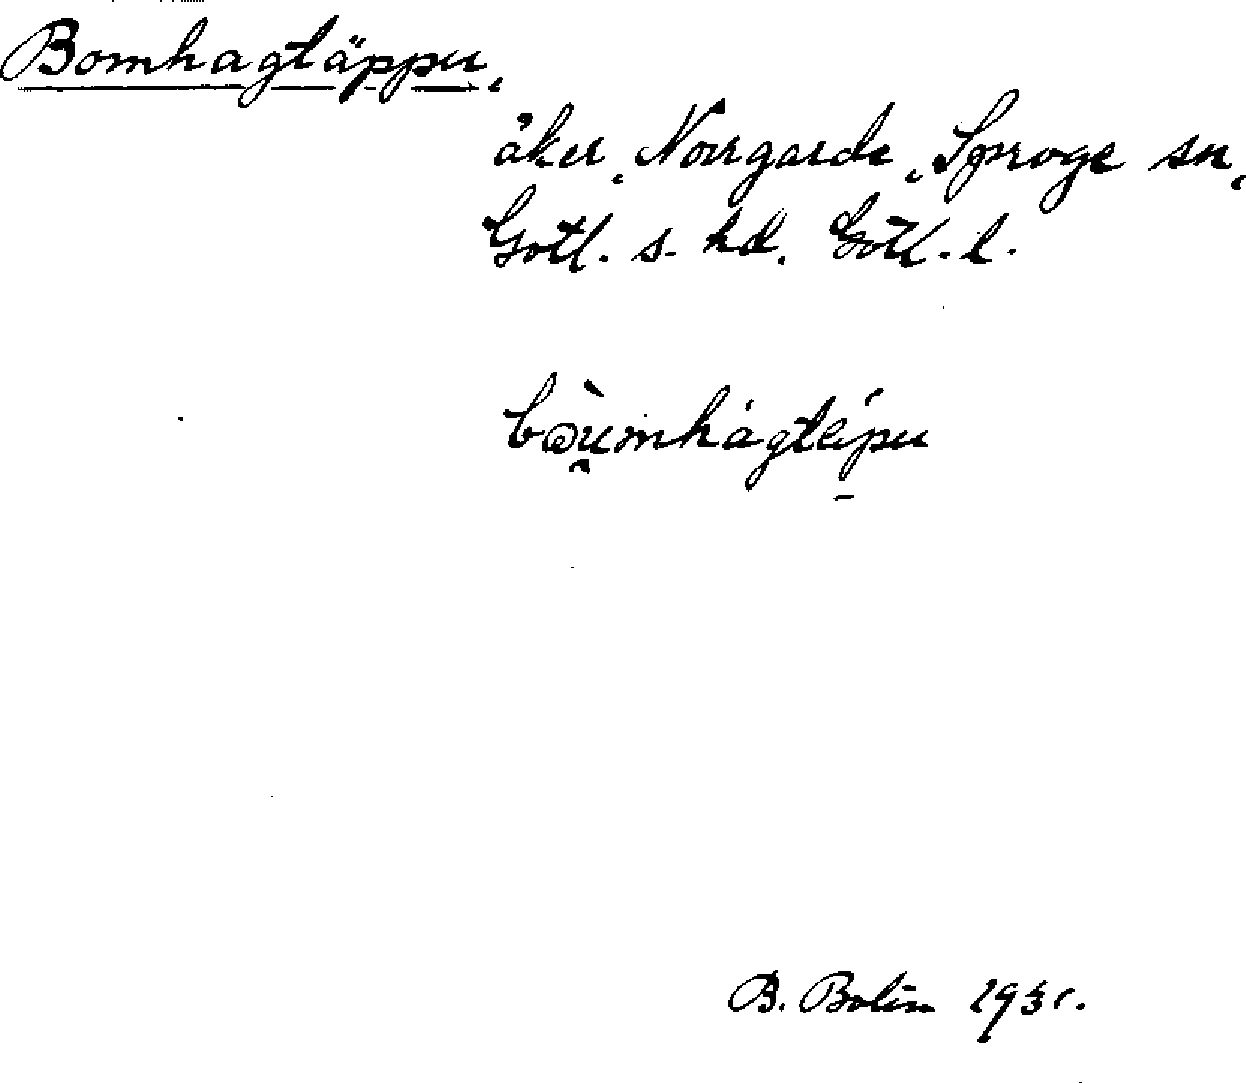 Bomhagtäppu,
åker, Norrgarde, Sproge sn,
Gotl. s. hd. Gotl. l.
bɷu̯mhagtepu
B. Bolin 1931.